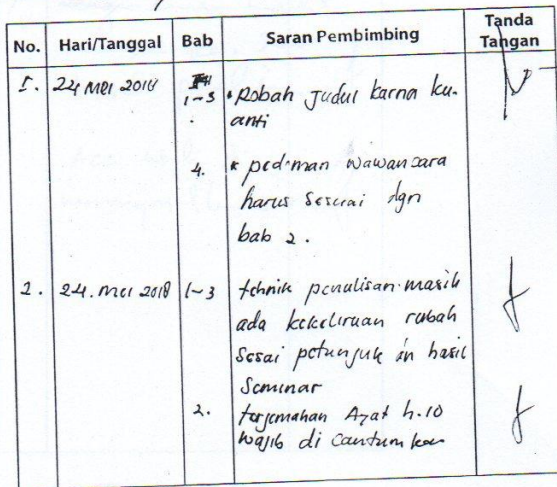 No. Hari/Tanggal Bab Saran Pembimbing Tanda Tangan
1. 24 Mei 2018 1-3 * Robah Judul karna ku-
anti
4. * pedoman wawancara
harus sesuai dgn
bab 2.
2. 24. mei 2018 1-3 tehnik penulisan masih
ada kekeliruan rubah
sesai petunjuk hasil
Seminar
2. terjemahan Ayat h.10
wajib di cantumkan